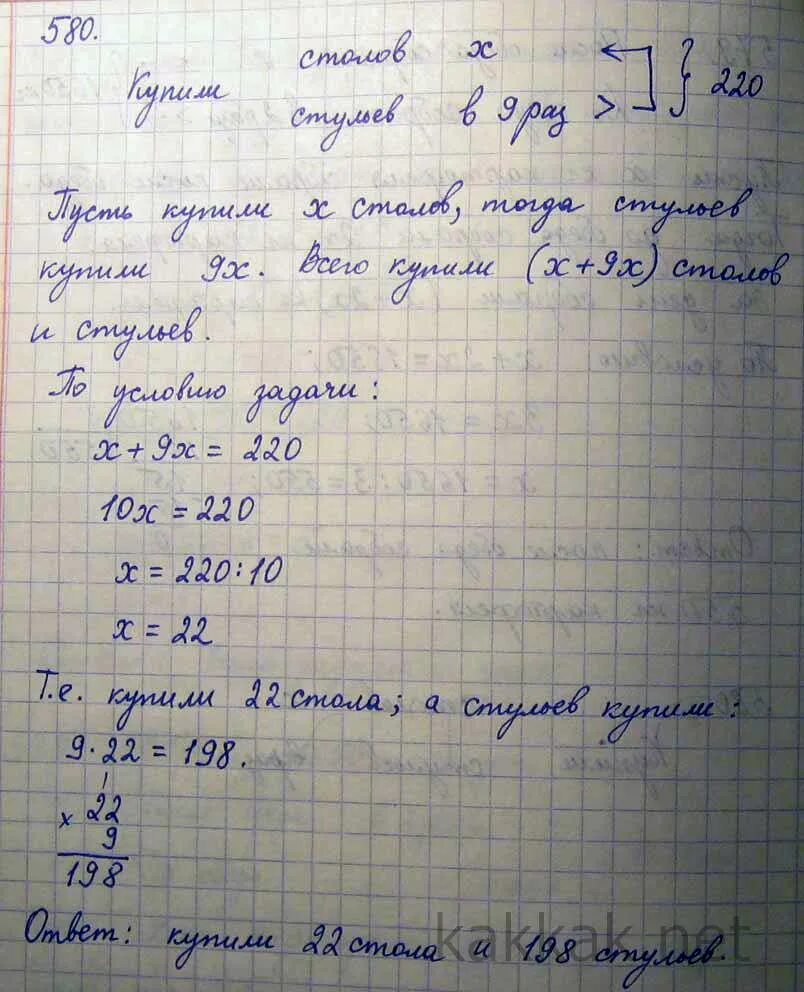 580.
столов x
Купили } 220
стульев в 9 раз >
Пусть купили x столов, тогда стульев
купили 9x. Всего купили (x+9x) столов
и стульев.
По условию задачи:
x + 9x = 220
10x = 220
x = 220:10
x = 22
Т.е. купили 22 стола; а стульев купили:
9·22 = 198.
1
x 22
9
198
Ответ: купили 22 стола и 198 стульев.
kakkak.net